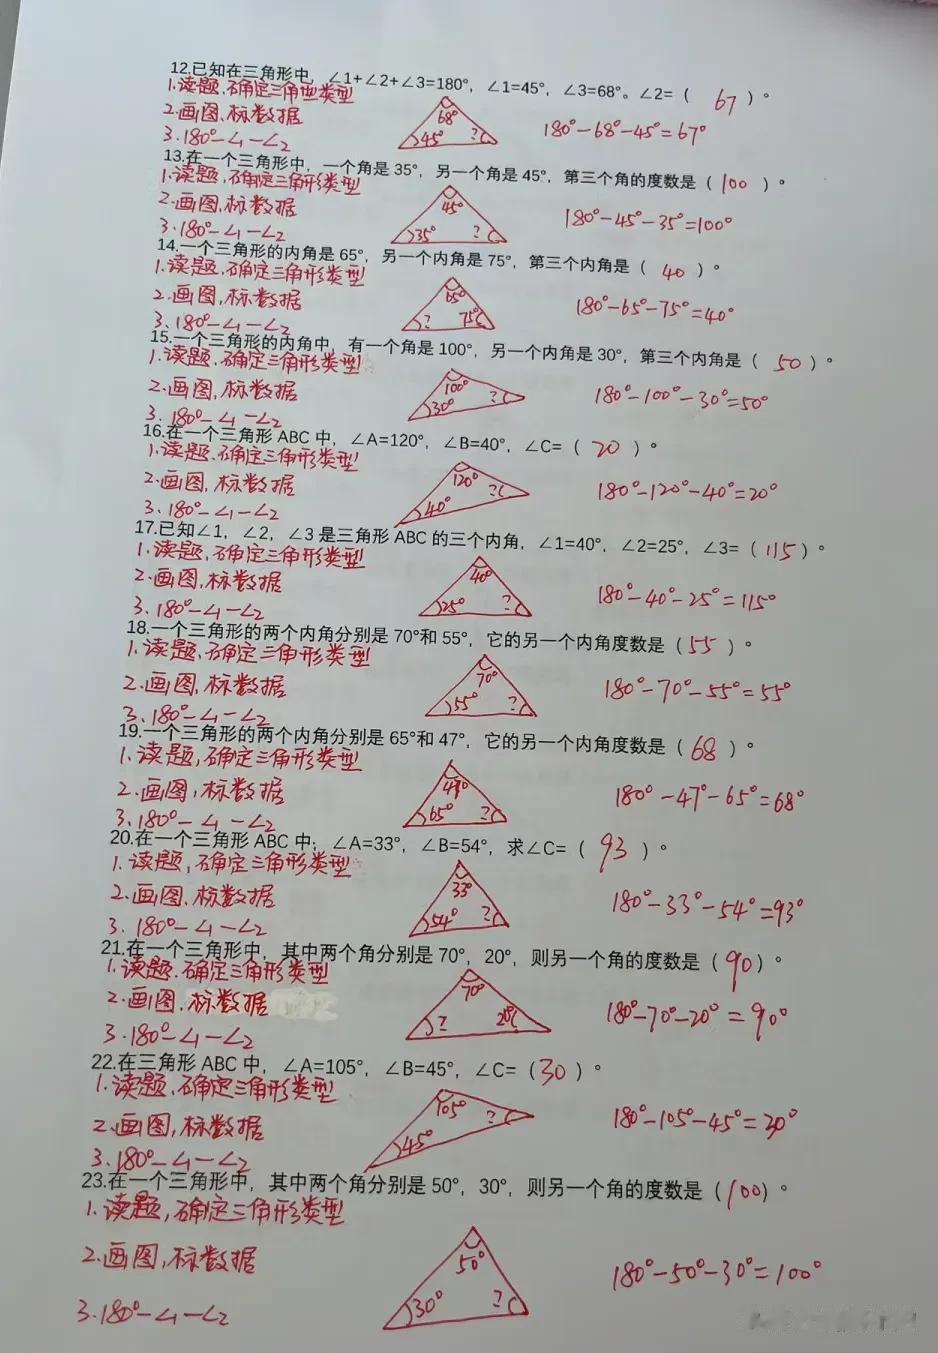 12.已知在三角形中，∠1+∠2+∠3=180°，∠1=45°，∠3=68°。∠2=（ 67 ）°
1.读题,确定三角型类型
2.画图,标数据
68°
45° ?
180°-68°-45°=67°
3.180°-∠1-∠2
13.在一个三角形中，一个角是 35°，另一个角是 45°，第三个角的度数是（ 100 ）°
1.读题,确定三角形类型
2.画图,标数据
45°
35° ?
180°-45°-35°=100°
3.180°-∠1-∠2
14.一个三角形的内角是 65°，另一个内角是 75°，第三个内角是（ 40 ）°
1.读题,确定三角形类型
2.画图,标数据
65°
? 75°
180°-65°-75°=40°
3.180°-∠1-∠2
15.一个三角形的内角中，有一个角是 100°，另一个内角是 30°，第三个内角是（ 50 ）°
1.读题,确定三角形类型
2.画图,标数据
100°
30° ?
180°-100°-30°=50°
3.180°-∠1-∠2
16.在一个三角形 ABC 中，∠A=120°，∠B=40°，∠C=（ 20 ）°
1.读题,确定三角形类型
2.画图,标数据
120°
40° ?
180°-120°-40°=20°
3.180°-∠1-∠2
17.已知∠1，∠2，∠3 是三角形 ABC 的三个内角，∠1=40°，∠2=25°，∠3=（ 115 ）°
1.读题,确定三角形类型
2.画图,标数据
40°
25° ?
180°-40°-25°=115°
3.180°-∠1-∠2
18.一个三角形的两个内角分别是 70°和 55°，它的另一个内角度数是（ 55 ）°
1.读题,确定三角形类型
2.画图,标数据
70°
55° ?
180°-70°-55°=55°
3.180°-∠1-∠2
19.一个三角形的两个内角分别是 65°和 47°，它的另一个内角度数是（ 68 ）°
1.读题,确定三角形类型
2.画图,标数据
47°
65° ?
180°-47°-65°=68°
3.180°-∠1-∠2
20.在一个三角形 ABC 中；∠A=33°，∠B=54°，求∠C=（ 93 ）°
1.读题,确定三角形类型
2.画图,标数据
33°
54° ?
180°-33°-54°=93°
3.180°-∠1-∠2
21.在一个三角形中，其中两个角分别是 70°，20°，则另一个角的度数是（ 90 ）°
1.读题,确定三角形类型
2.画图,标数据
70°
? 20°
180°-70°-20°=90°
3.180°-∠1-∠2
22.在三角形 ABC 中，∠A=105°，∠B=45°，∠C=（ 30 ）°
1.读题,确定三角形类型
2.画图,标数据
105°
45° ?
180°-105°-45°=30°
3.180°-∠1-∠2
23.在一个三角形中，其中两个角分别是 50°，30°，则另一个角的度数是（ 100 ）°
1.读题,确定三角形类型
2.画图,标数据
50°
30° ?
180°-50°-30°=100°
3.180°-∠1-∠2